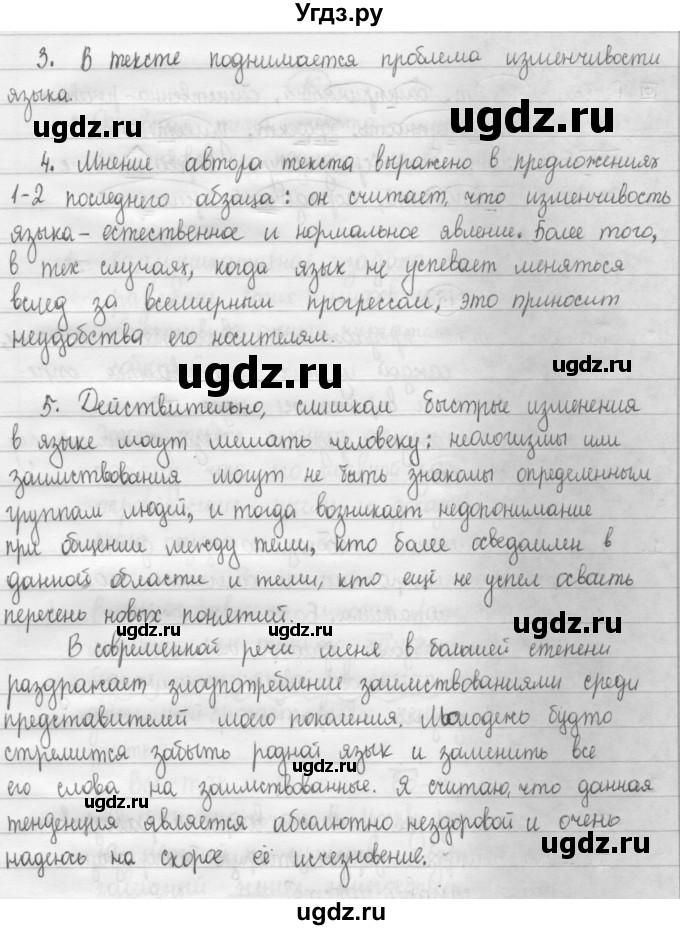 Угдз.ру
3. В тексте поднимается проблема изменчивости
языка.
ugdz.ru
ugdz.ru
4. Мнение автора текста выражено в предложениях
1-2 последнего абзаца: он считает, что изменчивость
языка - естественное и нормальное явление. Более того,
в тех случаях, когда язык не успевает меняться
вслед за всемирным прогрессом, это приносит
неудобства его носителям.
ugdz.ru
ugdz.ru
5. Действительно, слишком быстрые изменения
в языке могут мешать человеку: неологизмы или
заимствования могут не быть знакомы определенным
группам людей, и тогда возникает недопонимание
при общении между теми, кто более осведомлен в
данной области и теми, кто ещё не успел освоить
перечень новых понятий.
ugdz.ru
ugdz.ru
ugdz.ru
В современной речи меня в большей степени
раздражает злоупотребление заимствованиями среди
представителей моего поколения. Молодежь будто
стремится забыть родной язык и заменить все
его слова на заимствованные. Я считаю, что данная
ugdz.ru
тенденция является абсолютно нездоровой и очень
надеюсь на скорое её исчезновение.
ugdz.ru
ugdz.ru
ugdz.ru